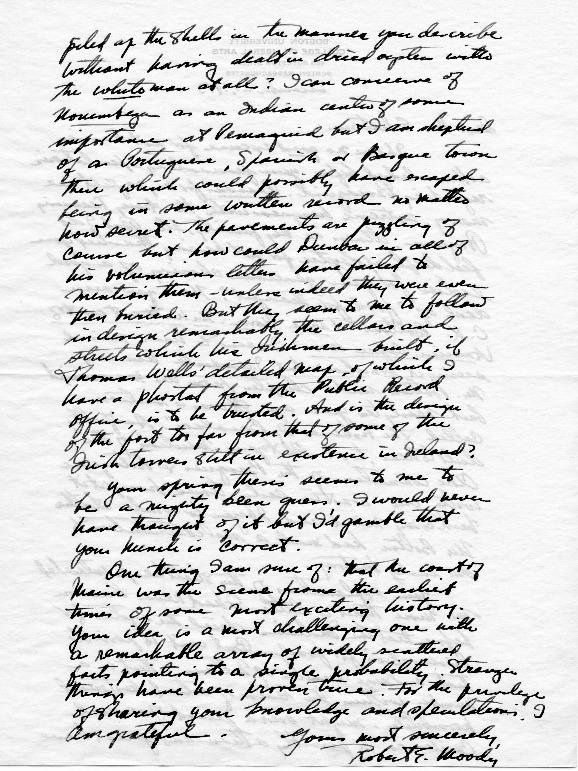 piled up the shells in the manner you describe
without having dealt in dried oysters with
the white man at all? I can conceive of
Norumbega as an Indian center of some
importance at Pemaquid but I am skeptical
of a Portuguese, Spanish or Basque town
there which could possibly have escaped
being in some written record no matter
how secret. The pavements are puzzling of
course but how could Dunbar in all of
his voluminous letters have failed to
mention them - unless indeed they were even
then buried. But they seem to me to follow
in design remarkably the cellars and
streets which his Irishmen built, if
Thomas Wells' detailed map, of which I
have a photostat from the Public Record
Office, is to be trusted. And is the design
of the fort too far from that of some of the
Irish towers still in existence in Ireland?
Your spring thesis seems to me to
be a mighty keen guess. I would never
have thought of it but I'd gamble that
your hunch is correct.
One thing I am sure of: that the coast of
Maine was the scene from the earliest
times of some most exciting history.
Your idea is a most challenging one with
a remarkable array of widely scattered
facts pointing to a single probability. Stranger
things have been proven true. For the privilege
of sharing your knowledge and speculations, I
am grateful.
Yours most sincerely,
Robert E. Moody